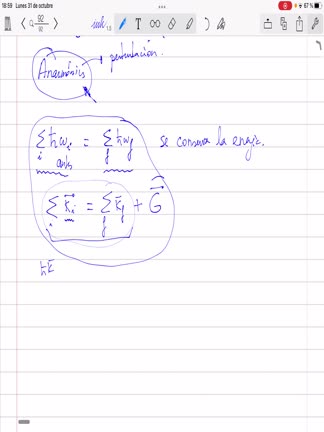 18:59 Lunes 31 de octubre
67 %
92
92
1.5
T
Anarmónico → perturbación.
∑ ħωᵢ = ∑ ħω_f se conserva la energía.
i f
antes
∑ k⃗ᵢ = ∑ k⃗_f + G⃗
i f
ħk⃗